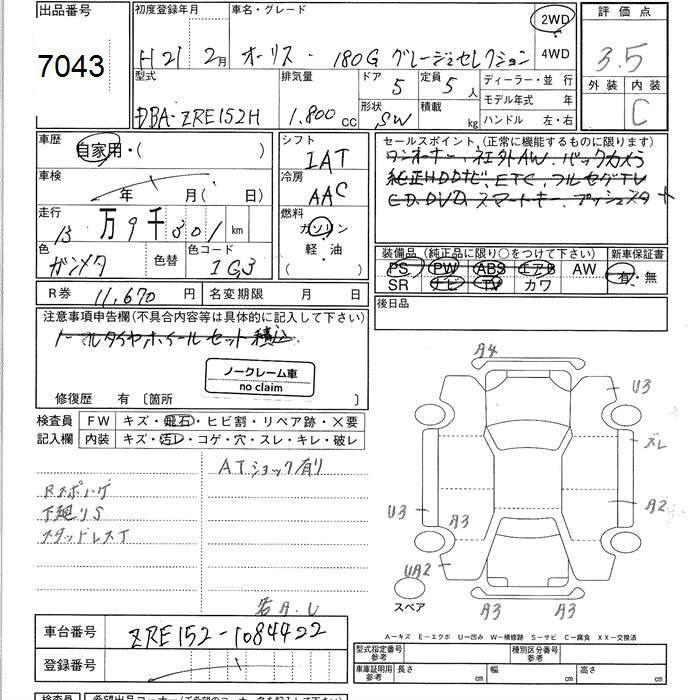 出品番号
7043
初度登録年月
H21 2月
車名・グレード
オーリス・ 180G グレージュセレクション
2WD
4WD
評価点
3.5
外装 内装
C
型式
DBA-ZRE152H
排気量
1.800cc
ドア
5
定員
5人
形状
SW
積載
kg
ディーラー・並行
モデル年式 年
ハンドル 左・右
車歴
自家用・( )
車検
年 月( 日)
走行
13万9千301km
色
ガンメタ
色替
色コード
1G3
シフト
IAT
冷房
AAC
燃料
ガソリン
軽・油
( )
セールスポイント(正常に機能するものに限ります)
ワンオーナー、社外AW、バックカメラ
純正HDDナビ、ETC、フルセグTV
CD、DVD、スマートキー、プッシュスタート
装備品(純正品に限り○をつけて下さい)
PS PW ABS エアB AW
SR ナビ TV カワ
新車保証書
有・無
R券 11,670円
名変期限 月 日
後日品
注意事項申告欄(不具合内容等は具体的に記入して下さい)
ノーマルタイヤホイールセット積込
ノークレーム車
no claim
修復歴 有〔箇所 〕
検査員
記入欄
FW キズ・飛石・ヒビ割・リペア跡・×要
内装 キズ・汚レ・コゲ・穴・スレ・キレ・破レ
ATショック有り
Rスポハゲ
下廻りS
スタッドレスT
若A.U
A4
U3
ズレ
A2
U3
A3
UA2
A3
A3
スペア
車台番号
ZRE152-1084422
登録番号
A-キズ E-エクボ U-凹み W-補修跡 S-サビ C-腐食 XX-交換済
型式指定番号
参考
種別区分番号
参考
車庫証明用
参考
長さ cm
幅 cm
高さ cm
検査員
希望出品コーナー(ご希望のコーナー名を記入して下さい)